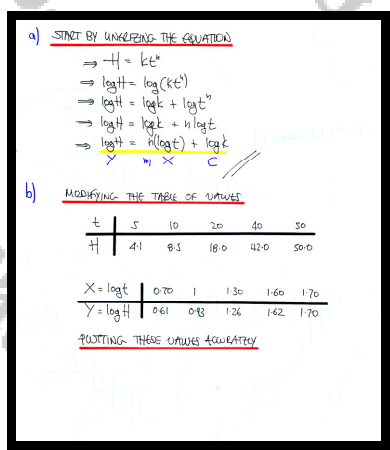 a) START BY LINEARIZING THE EQUATION
⇒ H = ktⁿ
⇒ logH = log(ktⁿ)
⇒ logH = logk + logtⁿ
⇒ logH = logk + nlogt
⇒ logH = n(logt) + logk
Y m X C
b) MODIFYING THE TABLE OF VALUES
t 5 10 20 40 50
H 4.1 8.5 18.0 42.0 50.0
X = logt 0.70 1 1.30 1.60 1.70
Y = logH 0.61 0.93 1.26 1.62 1.70
PLOTTING THESE VALUES ACCURATELY